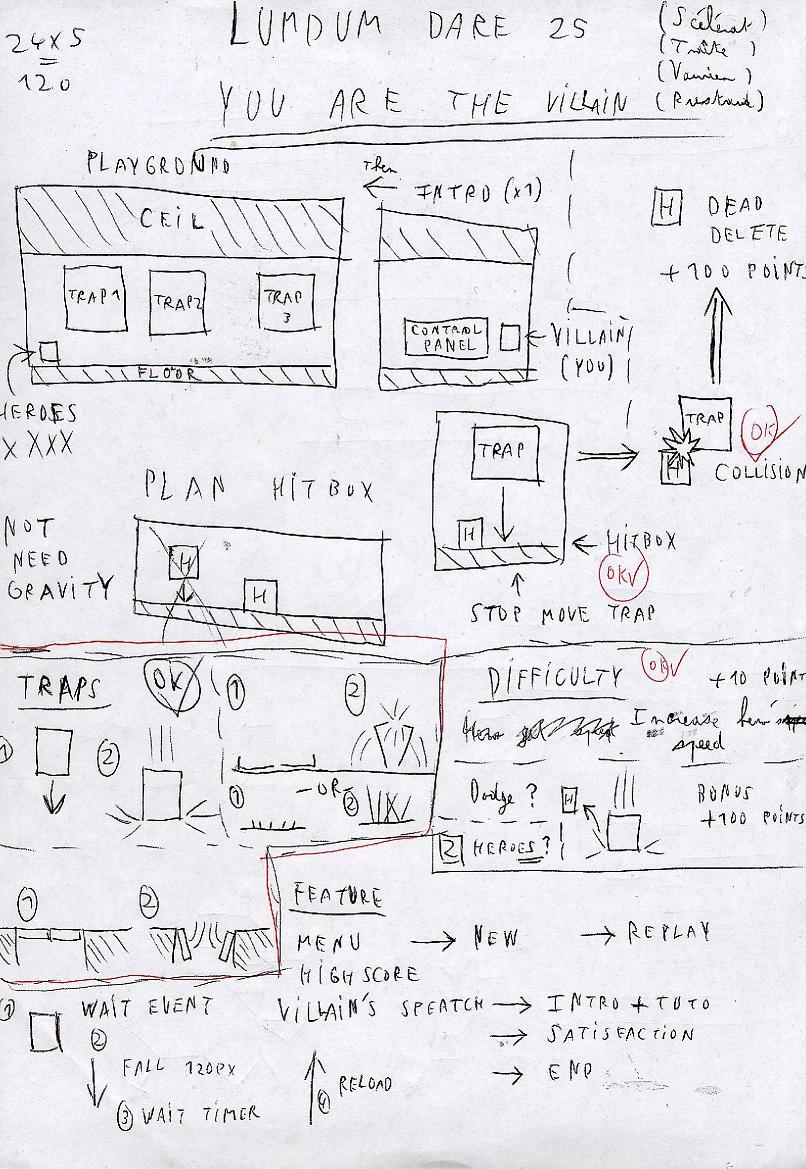 24x5
=
120
LUMDUM DARE 25
YOU ARE THE VILLAIN
(Scélérat)
(Traître)
(Vaurien)
PLAYGROUND
CEIL
TRAP1
TRAP2
TRAP
3
FLOOR
HEROES
X XXX
Then
← INTRO (x1)
CONTROL
PANEL
VILLAIN
(YOU)
H DEAD
DELETE
+100 POINTS
TRAP
OK
H
COLLISION
TRAP
H
HITBOX
OK
STOP MOVE TRAP
PLAN HITBOX
NOT
NEED
GRAVITY
H
H
TRAPS
OK
1
2
1
2
-OR-
1
2
1
2
DIFFICULTY
OK
+10 POINT
Increase hero's
speed
Dodge ?
H
BONUS
+100 POINTS
2 HEROES ?
FEATURE
MENU → NEW → REPLAY
HIGHSCORE
VILLAIN'S SPEATCH → INTRO + TUTO
→ SATISFACTION
→ END
1 WAIT EVENT
2
FALL 120PX
3 WAIT TIMER
4 RELOAD